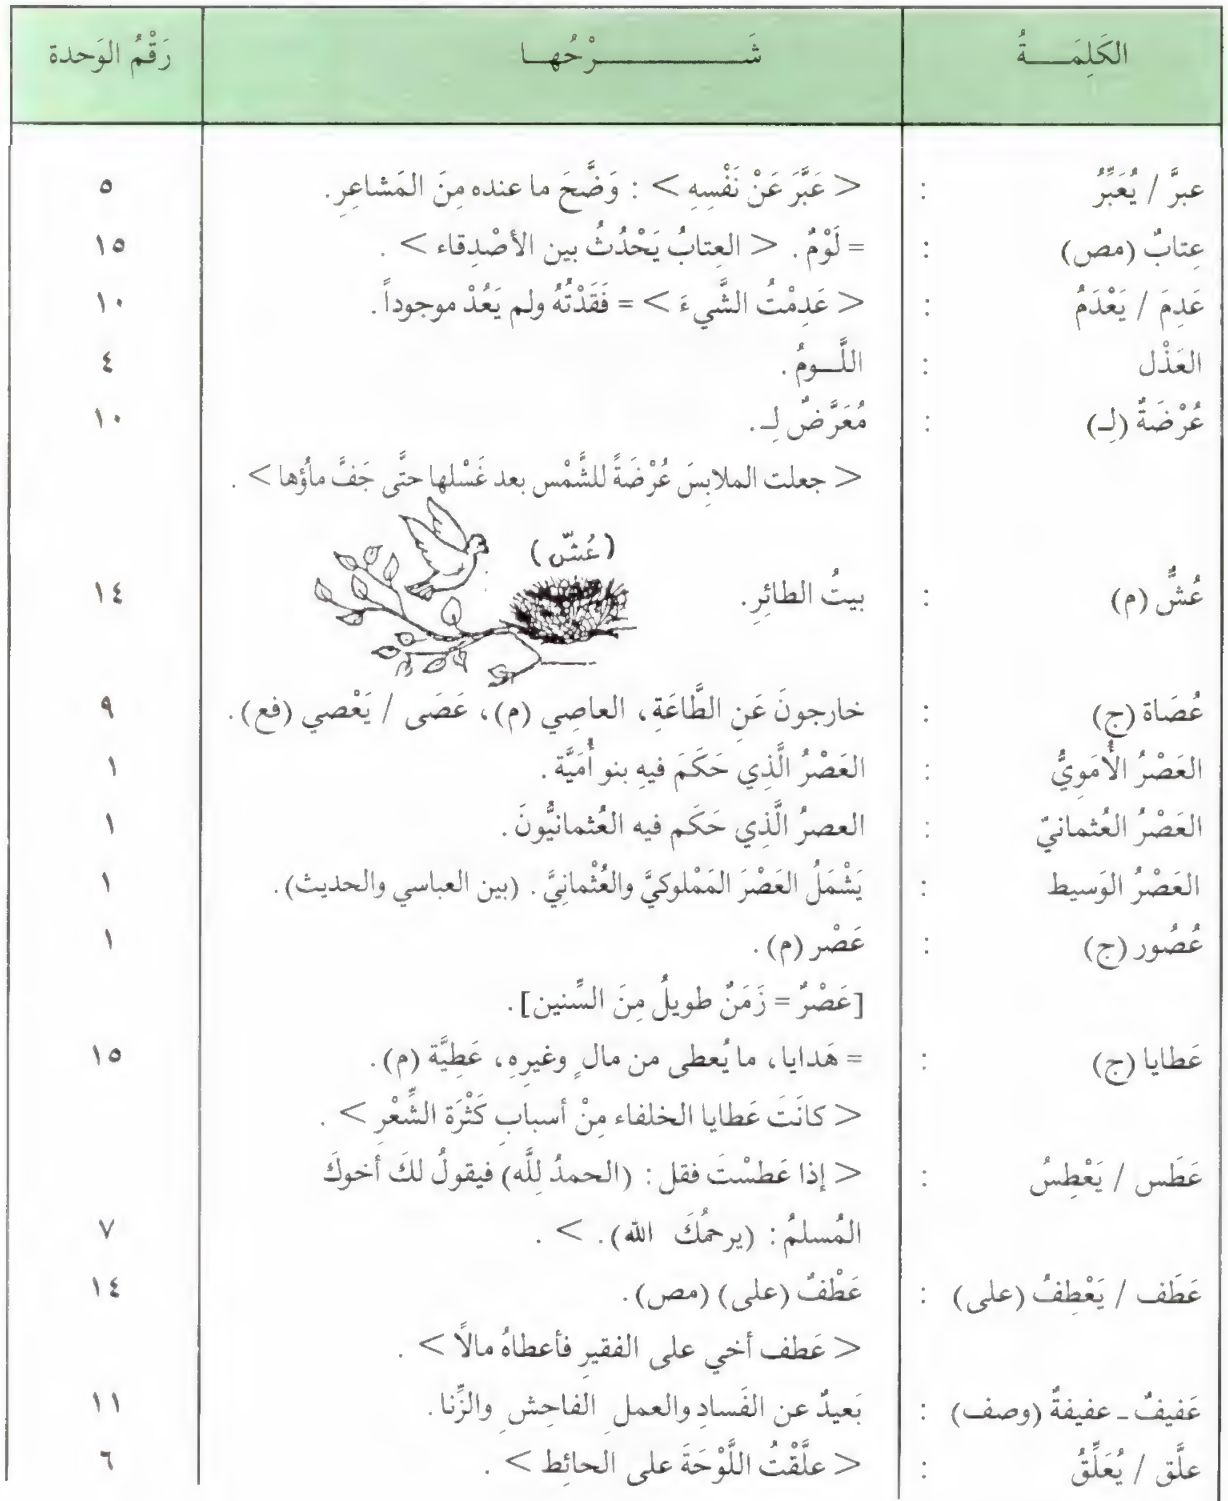 الكَلِمَـــةُ شَـــــــــــرْحُهــا رَقْمُ الوَحدة
عبرَّ / يُعَبِّرُ : < عَبَّرَ عَنْ نَفْسِهِ > : وَضَّحَ ما عنده مِنَ المَشاعِرِ . ٥
عِتابٌ (مص) : = لَوْمٌ . < العِتابُ يَحْدُثُ بين الأصْدِقاء > . ١٥
عَدِمَ / يَعْدَمُ : < عَدِمْتُ الشَّيءَ > = فَقَدْتُهُ ولم يَعُدْ موجوداً . ١٠
العَذْل : اللَّـــومُ . ٤
عُرْضَةٌ (لِـ) : مُعَرَّضٌ لِـ . ١٠
< جعلت الملابِسَ عُرْضَةً للشَّمْس بعد غَسْلها حتَّى جَفَّ ماؤها > .
(عُشّ)
عُشٌّ (م) : بيتُ الطائِرِ . ١٤
عُصَاة (ج) : خارجونَ عَنِ الطَّاعَةِ ، العاصِي (م) ، عَصَى / يَعْصي (فع) . ٩
العَصْرُ الأُمَوِيُّ : العَصْرُ الَّذِي حَكَمَ فيهِ بنو أُمَيَّة . ١
العَصْرُ العُثمانيّ : العصرُ الَّذِي حَكَم فيه العُثمانيُّونَ . ١
العَصْرُ الوَسيط : يَشْمَلُ العَصْرَ المَمْلوكيَّ والعُثْمانِيَّ . (بين العباسي والحديث) . ١
عُصُور (ج) : عَصْر (م) . ١
[عَصْرٌ = زَمَنٌ طويلُ مِنَ السِّنين] .
عَطايا (ج) : = هَدايا ، ما يُعطى من مال ٍ وغيرِهِ ، عَطِيَّة (م) . ١٥
< كانَتَ عَطايا الخلفاء مِنْ أسبابِ كَثْرَة الشِّعْرِ > .
عَطَس / يَعْطِسُ : < إذا عَطسْتَ فقل : (الحمدُ لِلَّه) فيقولُ لكَ أخوكَ
المُسلمُ : (يرحمُكَ الله) . > . ٧
عَطَف / يَعْطِفُ (على) : عَطْفٌ (على) (مص) . ١٤
< عَطف أخي على الفقيرِ فأعطاهُ مالًا > .
عَفيفٌ ـ عفيفةٌ (وصف) : بَعيدٌ عن الفَسادِ والعمل ِ الفاحِش ِ والزِّنا . ١١
علَّق / يُعَلِّقُ : < علَّقْتُ اللَّوْحَةَ على الحائِط > . ٦